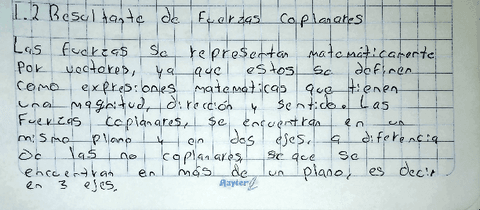 1.2 Resultante de Fuerzas coplanares
Las fuerzas se representan matemáticamente
por vectores, ya que estos se definen
como expresiones matemáticas que tienen
una magnitud, dirección y sentido. Las
Fuerzas coplanares, se encuentran en un
mismo plano y en dos ejes, a diferencia
de las no coplanares se que se
encuentran en más de un plano, es decir
en 3 ejes.
Rayter